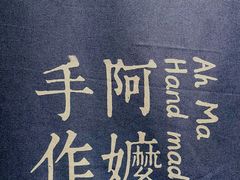 阿嬤
手作
Ah Ma
Hand mad